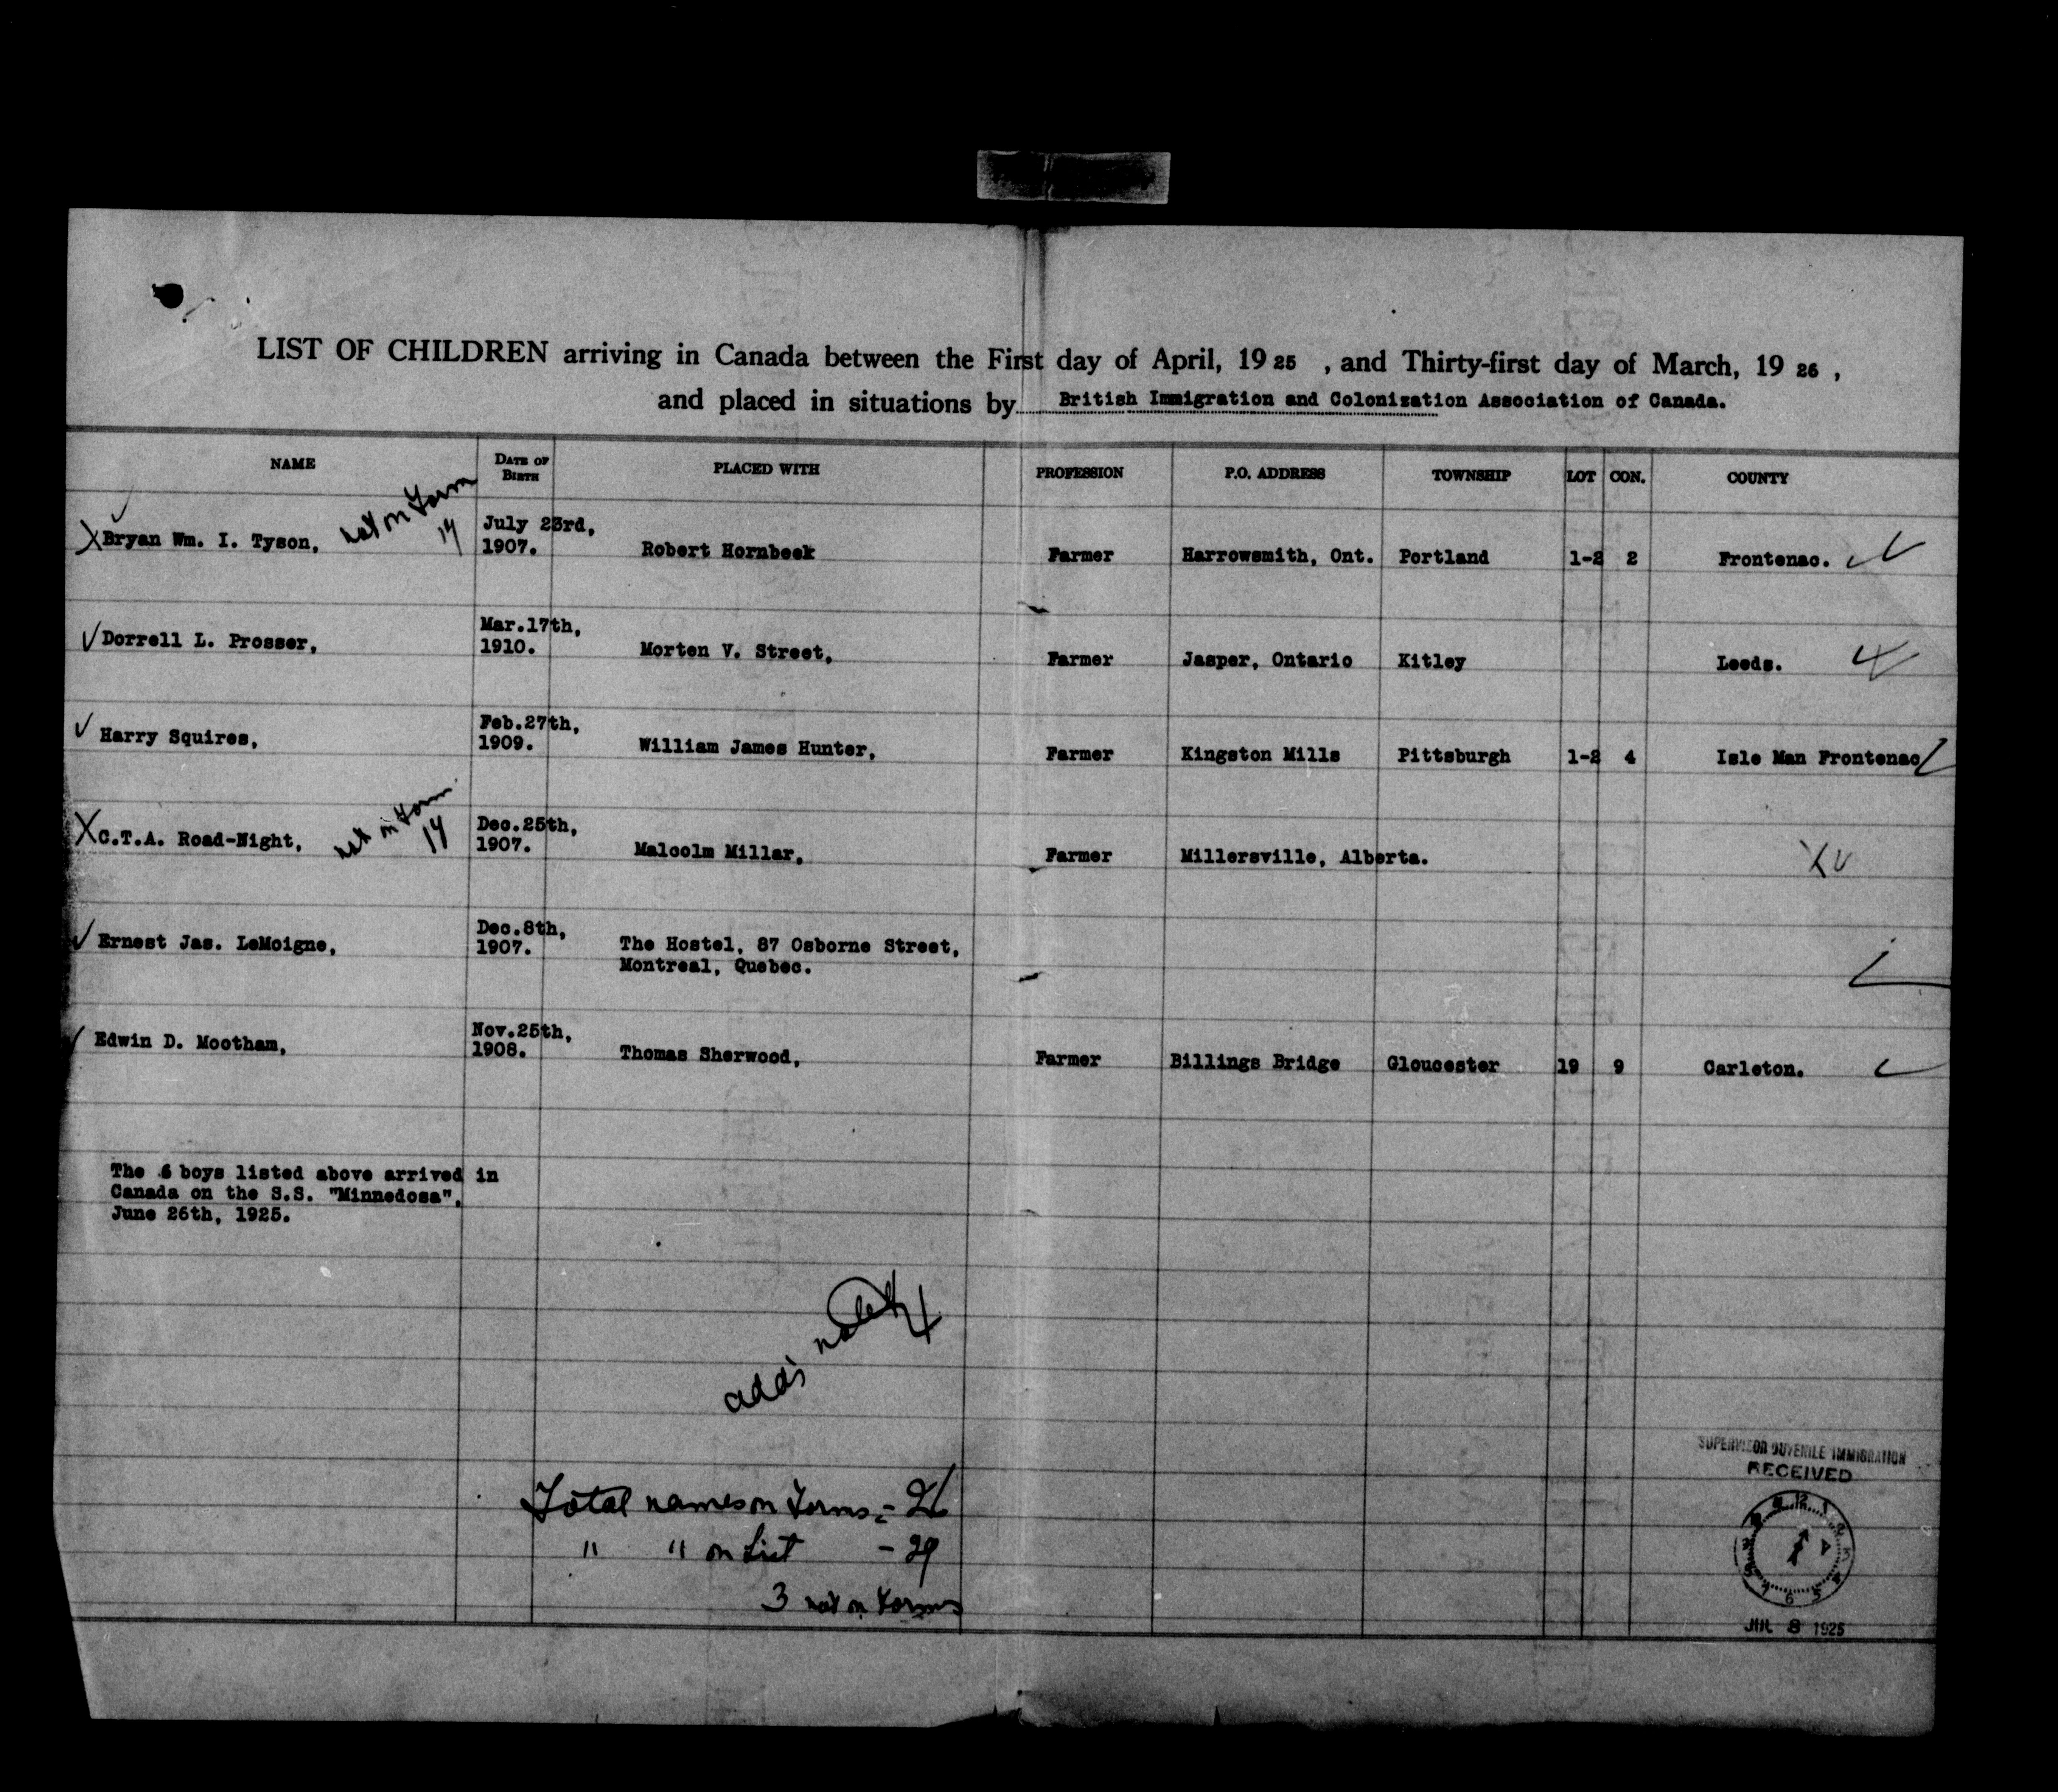 LIST OF CHILDREN arriving in Canada between the First day of April, 19 25 , and Thirty-first day of March, 19 26 ,
and placed in situations by British Immigration and Colonization Association of Canada.
NAME DATE OF BIRTH PLACED WITH PROFESSION P.O. ADDRESS TOWNSHIP LOT CON. COUNTY
not on Form
14
Bryan Wm. I. Tyson, July 23rd, 1907. Robert Hornbeek Farmer Harrowsmith, Ont. Portland 1-2 2 Frontenac.
Dorrell L. Prosser, Mar.17th, 1910. Morten V. Street, Farmer Jasper, Ontario Kitley Leeds.
Harry Squires, Feb.27th, 1909. William James Hunter, Farmer Kingston Mills Pittsburgh 1-2 4 Isle Man Frontenac
not on Form
14
C.T.A. Road-Night, Dec.25th, 1907. Malcolm Millar, Farmer Millersville, Alberta.
Ernest Jas. LeMoigne, Dec.8th, 1907. The Hostel, 87 Osborne Street,
Montreal, Quebec.
Edwin D. Mootham, Nov.25th, 1908. Thomas Sherwood, Farmer Billings Bridge Gloucester 19 9 Carleton.
The 6 boys listed above arrived in
Canada on the S.S. "Minnedosa",
June 26th, 1925.
add's noted
Total names on Forms - 26
" " on List - 29
3 not on Forms
SUPERVISOR JUVENILE IMMIGRATION
RECEIVED
JUL 8 1925